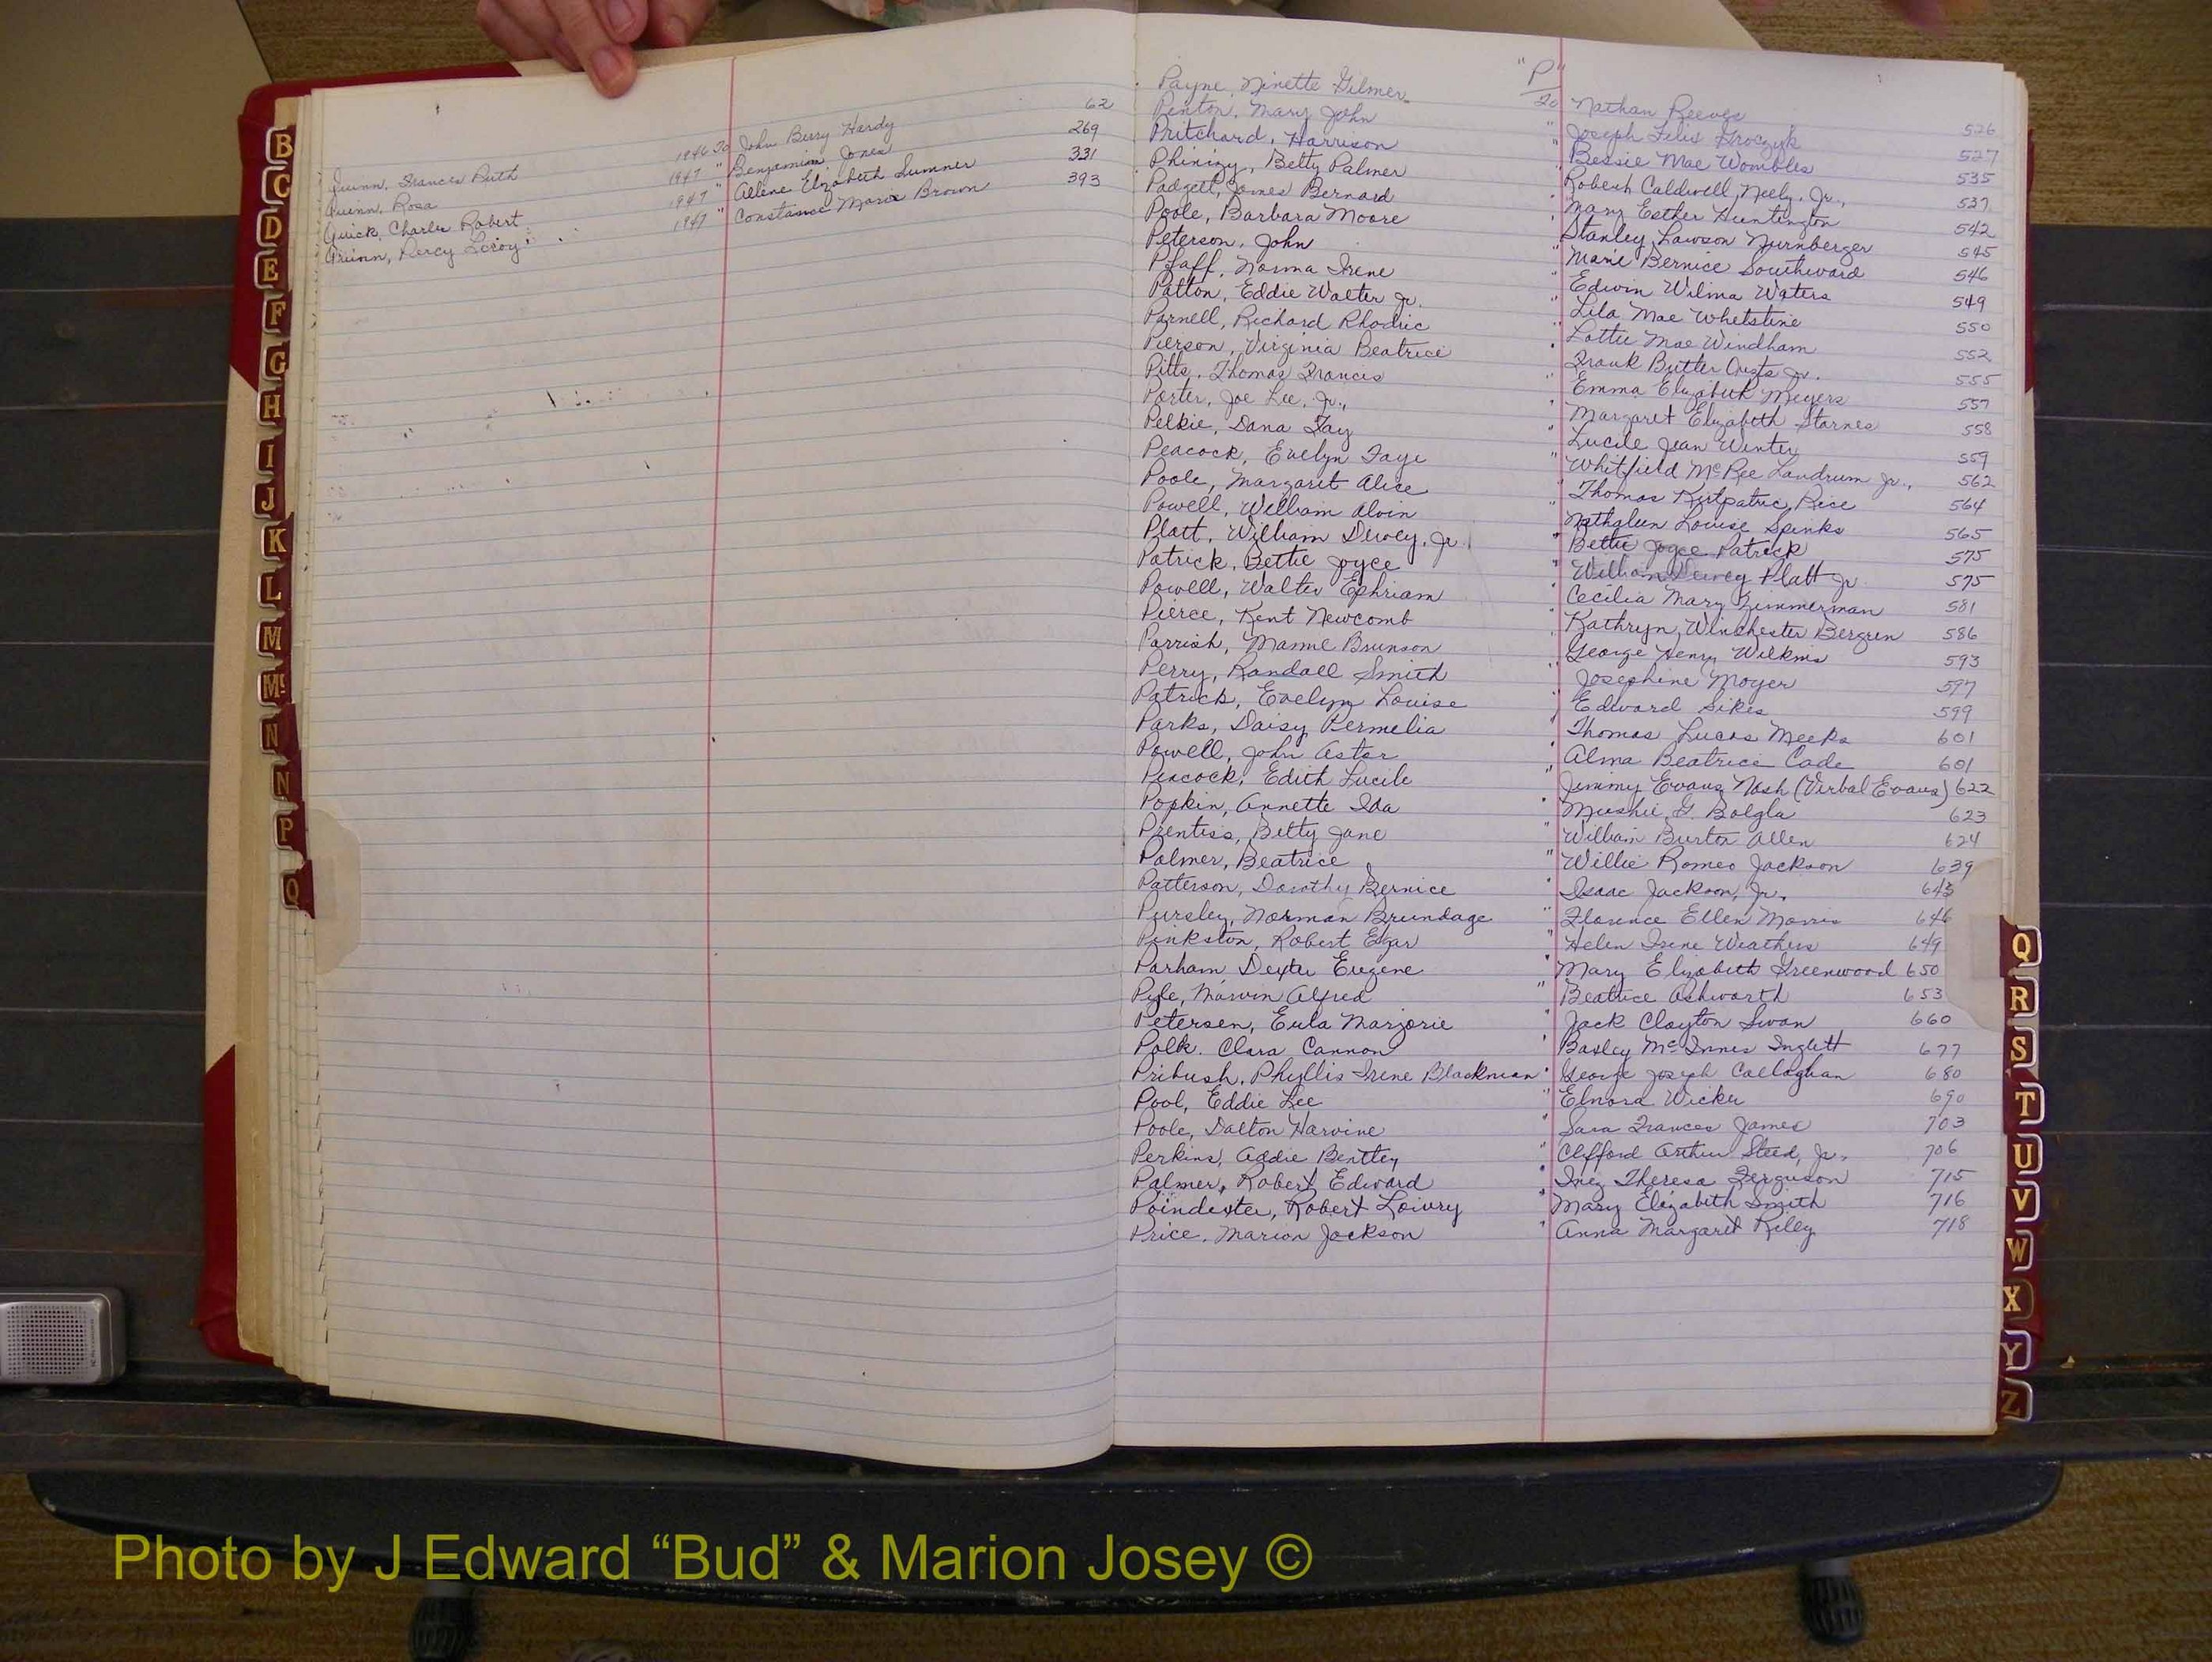 B
C
D
E
F
G
H
I
J
K
L
M
Mc
N
N
P
Q
Quinn, Frances Ruth 1946 To John Berry Hardy 62
Quinn, Rosa 1947 " Benjamin Jones 269
Quick, Charles Robert 1947 " Allene Elizabeth Sumner 331
Quinn, Percy Leroy 1947 " Constance Marie Brown 393
"P"
Payne, Ninette Gilmer To Nathan Reeves 526
Penton, Mary John " Joseph Felix 527
Pritchard, Harrison " Bessie Mae Wombles 535
Phinizy, Betty Palmer " Robert Caldwell Neely, Jr., 537
Padgett, James Bernard " Mary Esther Huntington 542
Poole, Barbara Moore " Stanley Lawson Nurnberger 545
Peterson, John " Marie Bernice Southward 546
Pfaff, Norma Irene " Edwin Wilma Waters 549
Patton, Eddie Walter Jr. " Lila Mae Whetstine 550
Parnell, Richard Rhodric " Lottie Mae Windham 552
Pierson, Virginia Beatrice " Frank Butler Jr. 555
Pitts, Thomas Francis " Emma Elizabeth Meyers 557
Porter, Joe Lee, Jr., " Margaret Elizabeth Starnes 558
Pelkie, Dana Fay " Lucile Jean Winter 559
Peacock, Evelyn Faye " Whitfield McRee Landrum Jr., 562
Poole, Margaret Alice " Thomas Kirkpatric Rice 564
Powell, William Alvin " Nathaleen Louise Spinks 565
Platt, William Dewey, Jr. " Bettie Joyce Patrick 575
Patrick, Bettie Joyce " William Dewey Platt Jr. 575
Powell, Walter Ephriam " Cecilia Mary Zimmerman 581
Pierce, Kent Newcomb " Kathryn Winchester Bergren 586
Parrish, Mamie Brunson " George Henry Wilkins 593
Perry, Randall Smith " Josephine Moyer 597
Patrick, Evelyn Louise " Edward Sikes 599
Parks, Daisy Permelia " Thomas Lucas Meeks 601
Powell, John Astor " Alma Beatrice Cade 601
Peacock, Edith Lucile " Jimmy Evans Nash (Virbal Evans) 622
Popkin, Annette Ida " G. Bolgla 623
Prentiss, Betty Jane " William Burton Allen 624
Palmer, Beatrice " Willie Romeo Jackson 639
Patterson, Dorothy Bernice " Isaac Jackson, Jr. 643
Pursley, Norman Brundage " Florence Ellen Morris 646
Pinkston, Robert Edgar " Helen Irene Weathers 649
Parham Dexter Eugene " Mary Elizabeth Greenwood 650
Pyle, Marvin Alfred " Beatrice Ashworth 653
Petersen, Eula Marjorie " Jack Clayton Swan 660
Polk. Clara Cannon " Basley McInnes Inglett 677
Pribush, Phyllis Irene Blackman " George Joseph Callaghan 680
Pool, Eddie Lee " Elnora Wicker 690
Poole, Dalton Harvine " Sara Frances James 703
Perkins, Addie Bentley " Clifford Arthur Steed, Jr. 706
Palmer, Robert Edward " Inez Theresa Ferguson 715
Poindexter, Robert Lowry " Mary Elizabeth Smith 716
Price, Marion Jackson " Anna Margaret Riley 718
Q
R
S
T
U
V
W
X
Y
Z
Photo by J Edward “Bud” & Marion Josey ©